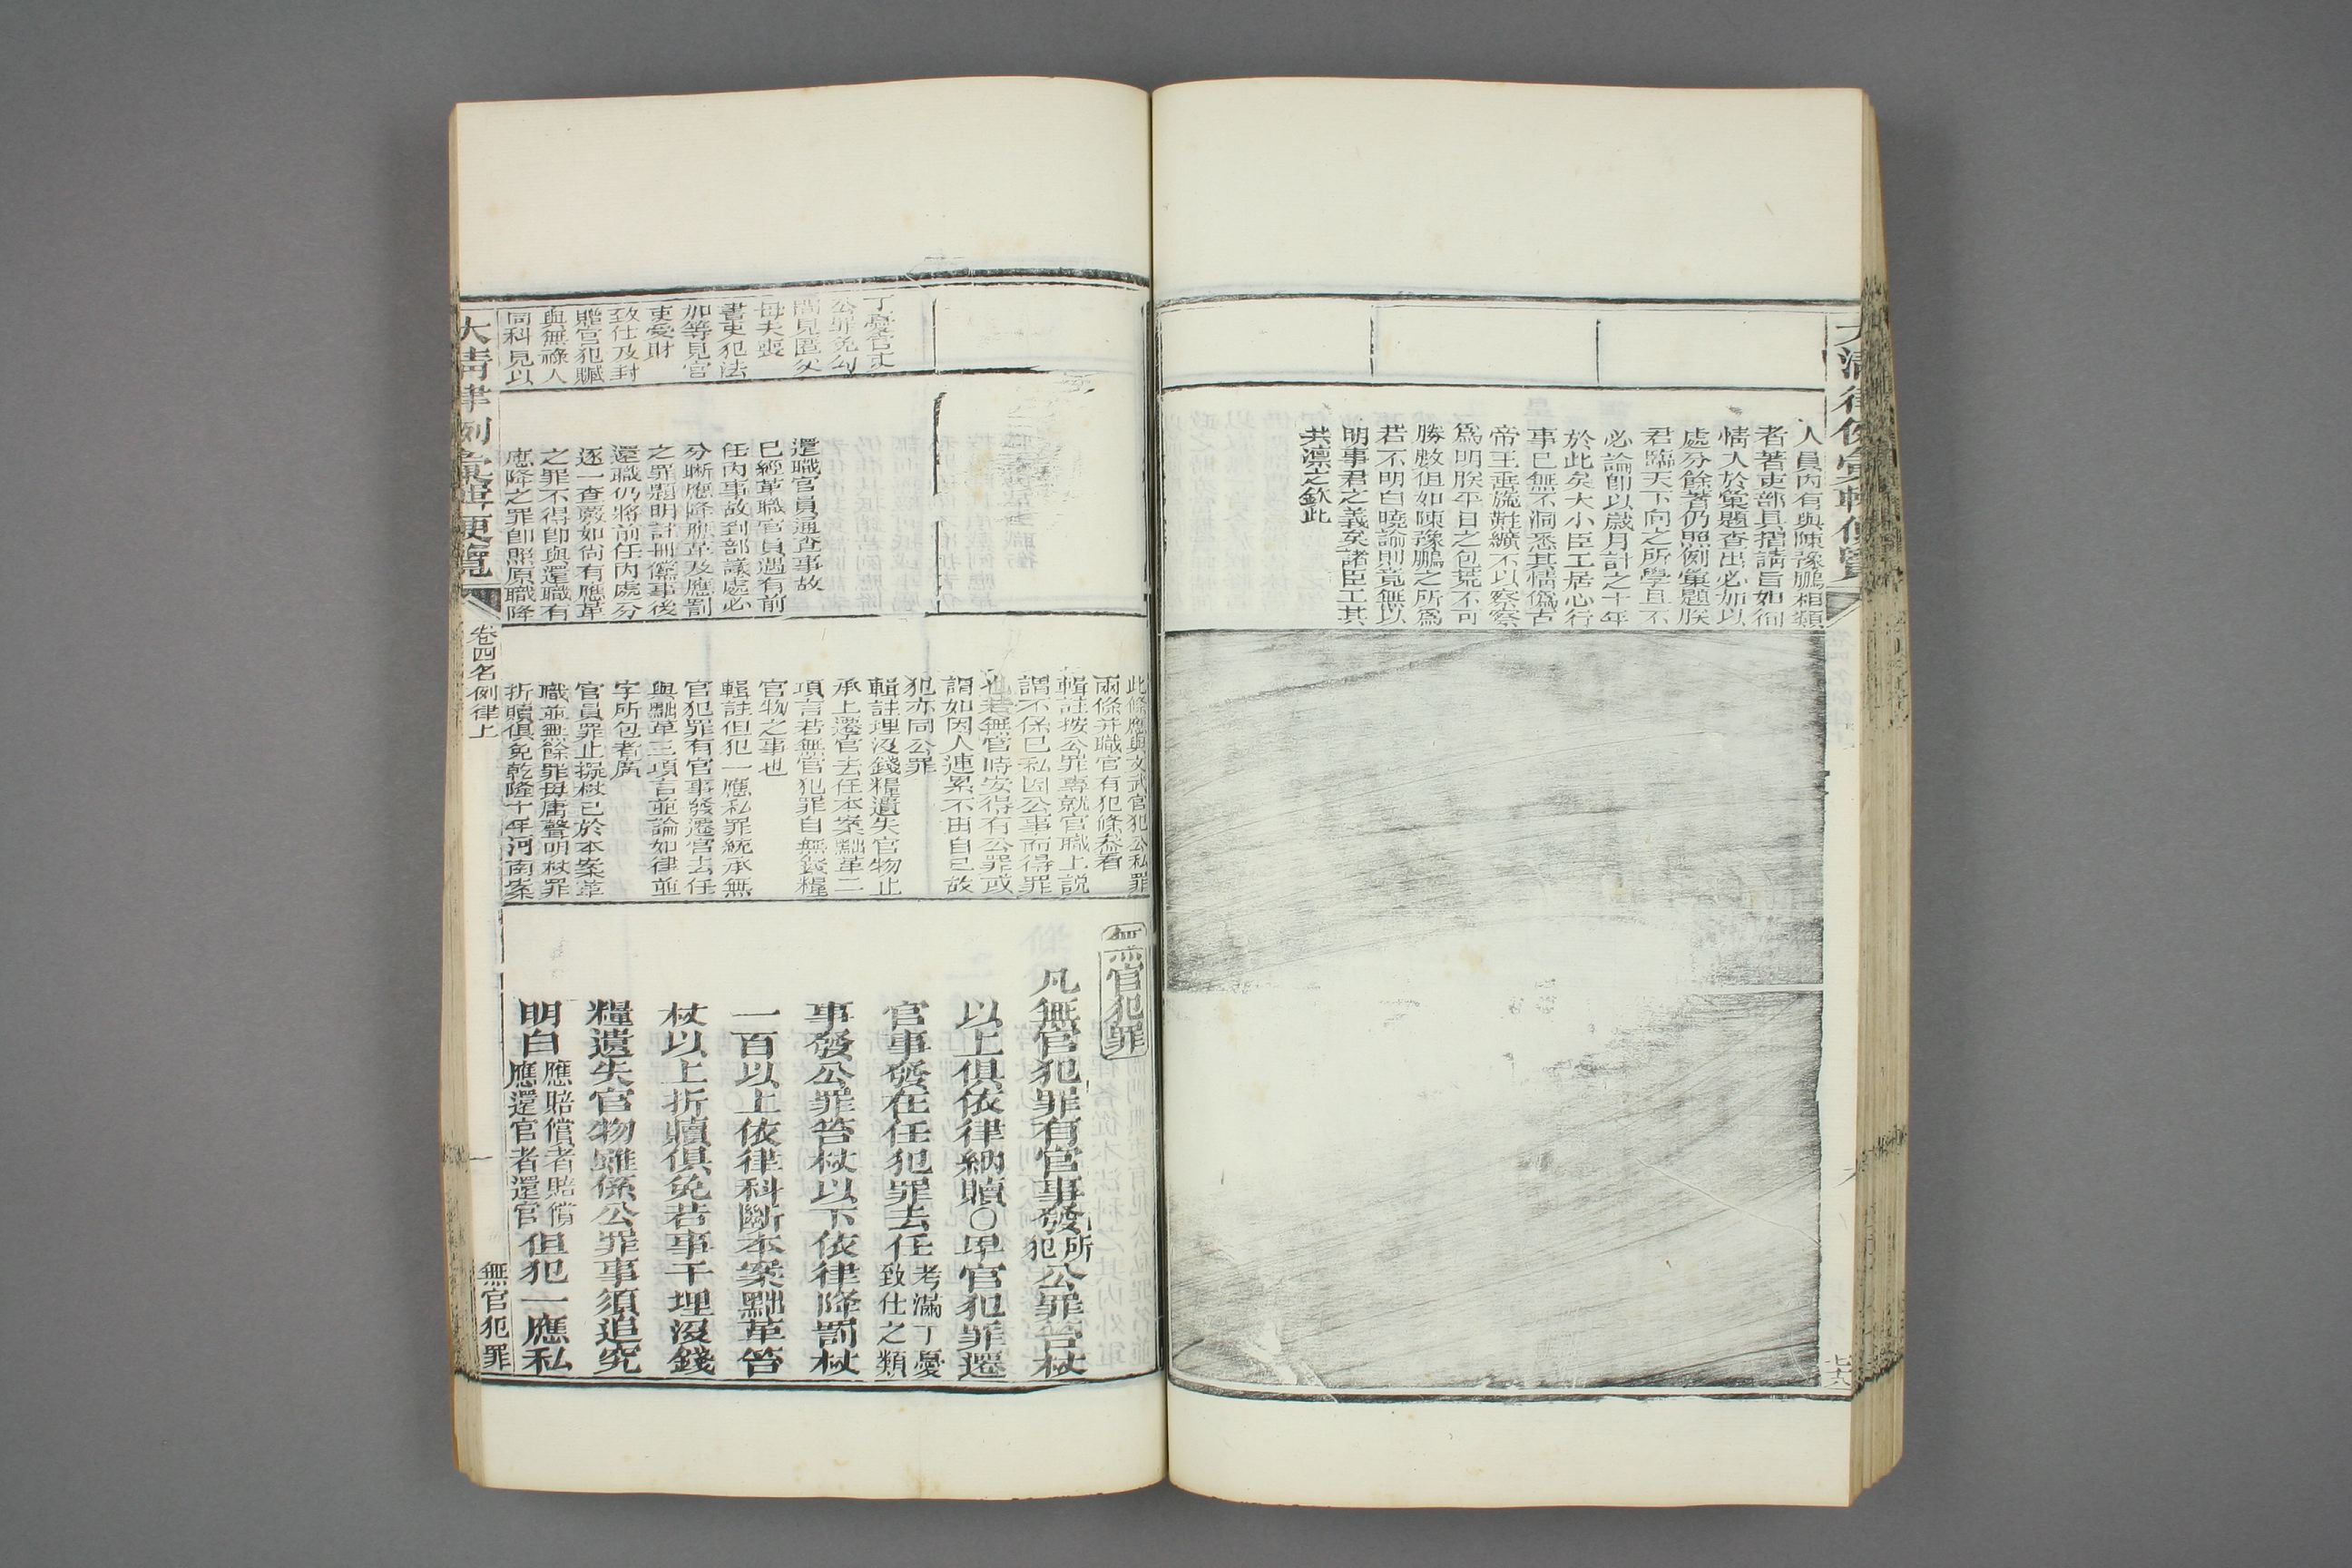 大清律例彙輯便覽
人員內有與陳豫鵬相類
者著吏部具摺請旨如徇
情人於彙題查出必加以
處分餘著仍照例彙題朕
君臨天下向之所學且不
必論卽以歲月計之十年
於此矣大小臣工居心行
事已無不洞悉其情僞古
帝王垂旒黈纊不以察察
爲明朕平日之包荒不可
勝數但如陳豫鵬之所爲
若不明白曉諭則竟無以
明事君之義矣諸臣工其
共凛之欽此
丁憂告丈
公罪免勾
聞見匿父
母夫喪
書吏犯法
加等見官
吏受財
致仕及封
贈官犯贓
與無祿人
同科見以
還職官員通查事故
已經革職官員遇有前
任內事故到部議處必
分晰應降應革及應罰
之罪題明註冊儻事後
還職仍將前任內處分
逐一查覈如尙有應革
之罪不得卽與還職有
應降之罪卽照原職降
此條應與文武官犯公私罪
兩條并職官有犯條叅看
輯註按公罪專就官職上說
謂不係己私因公事而得罪
也若無官時安得有公罪或
謂如因人連累不由自己故
犯亦同公罪
輯註埋沒錢糧遺失官物止
承上遷官去任本案黜革二
項言若無官犯罪自無錢糧
官物之事也
輯註但犯一應私罪統承無
官犯罪有官事發遷官去任
與黜革三項言並論如律並
字所包者廣
官員罪止擬杖已於本案革
職並無餘罪毋庸聲明杖罪
折贖俱免乾隆十年河南案
無官犯罪
凡無官犯罪有官事發所犯公罪笞杖
以上俱依律納贖○卑官犯罪遷
官事發在任犯罪去任考滿丁憂致仕之類
事發公罪笞杖以下依律降罰杖
一百以上依律科斷本案黜革笞
杖以上折贖俱免若事干埋沒錢
糧遺失官物雖係公罪事須追究
明白應賠償者賠償應還官者還官但犯一應私
大清律例彙輯便覽
卷四名例律上
無官犯罪